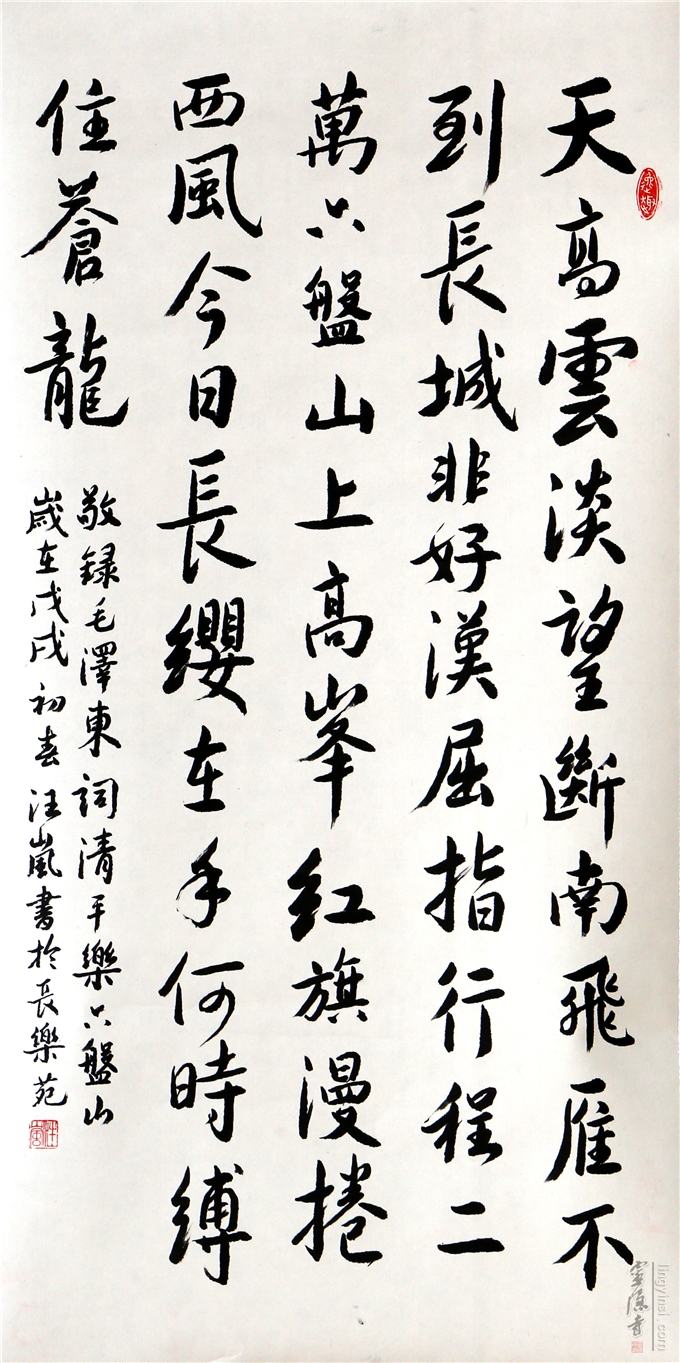 天高雲淡望斷南飛雁不
到長城非好漢屈指行程二
萬六盤山上高峯紅旗漫捲
西風今日長纓在手何時縛
住蒼龍
敬録毛澤東詞清平樂六盤山
歲在戊戌初春汪嵐書於長樂苑
靈隱寺
lingyinsi.com